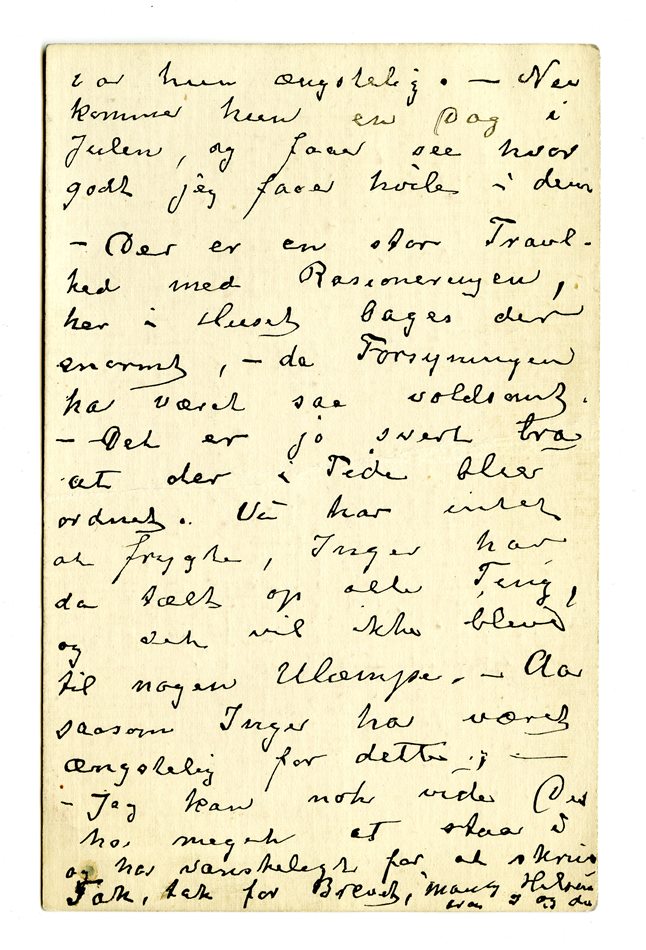 var hun ængstelig. — Nu
kommer hun en Dag i
Julen, og faar see hvor
godt jeg faaer hvile i dem
— Der er en stor Travl-
hed med Rasioneringen,
her i Huset bages der
enormt, — da Forsyningen
ha været saa voldsomt.
— Det er jo svert bra
at der i Tide blev
ordnet. Vi har intet
at frygte, Inger har
da tælt op alle Ting,
og det vil ikke blive
til nogen Ulæmpe. —
saasom Inger ha været
ængstelig for dette, —
— Jeg kan nok vide De
har meget at staa i
og har vanskeligt for at skrive
Tak, tak for Brevet, mange Hilsener